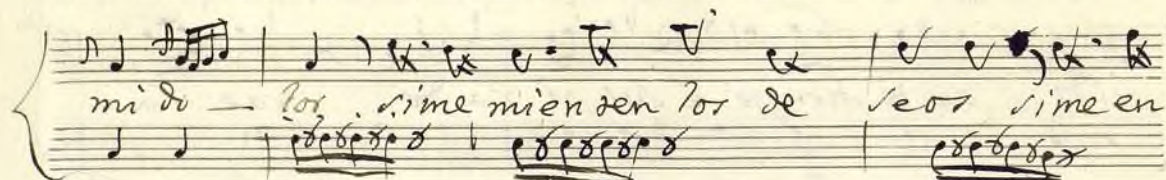 mi do — lor. sime mienten los de seos sime en